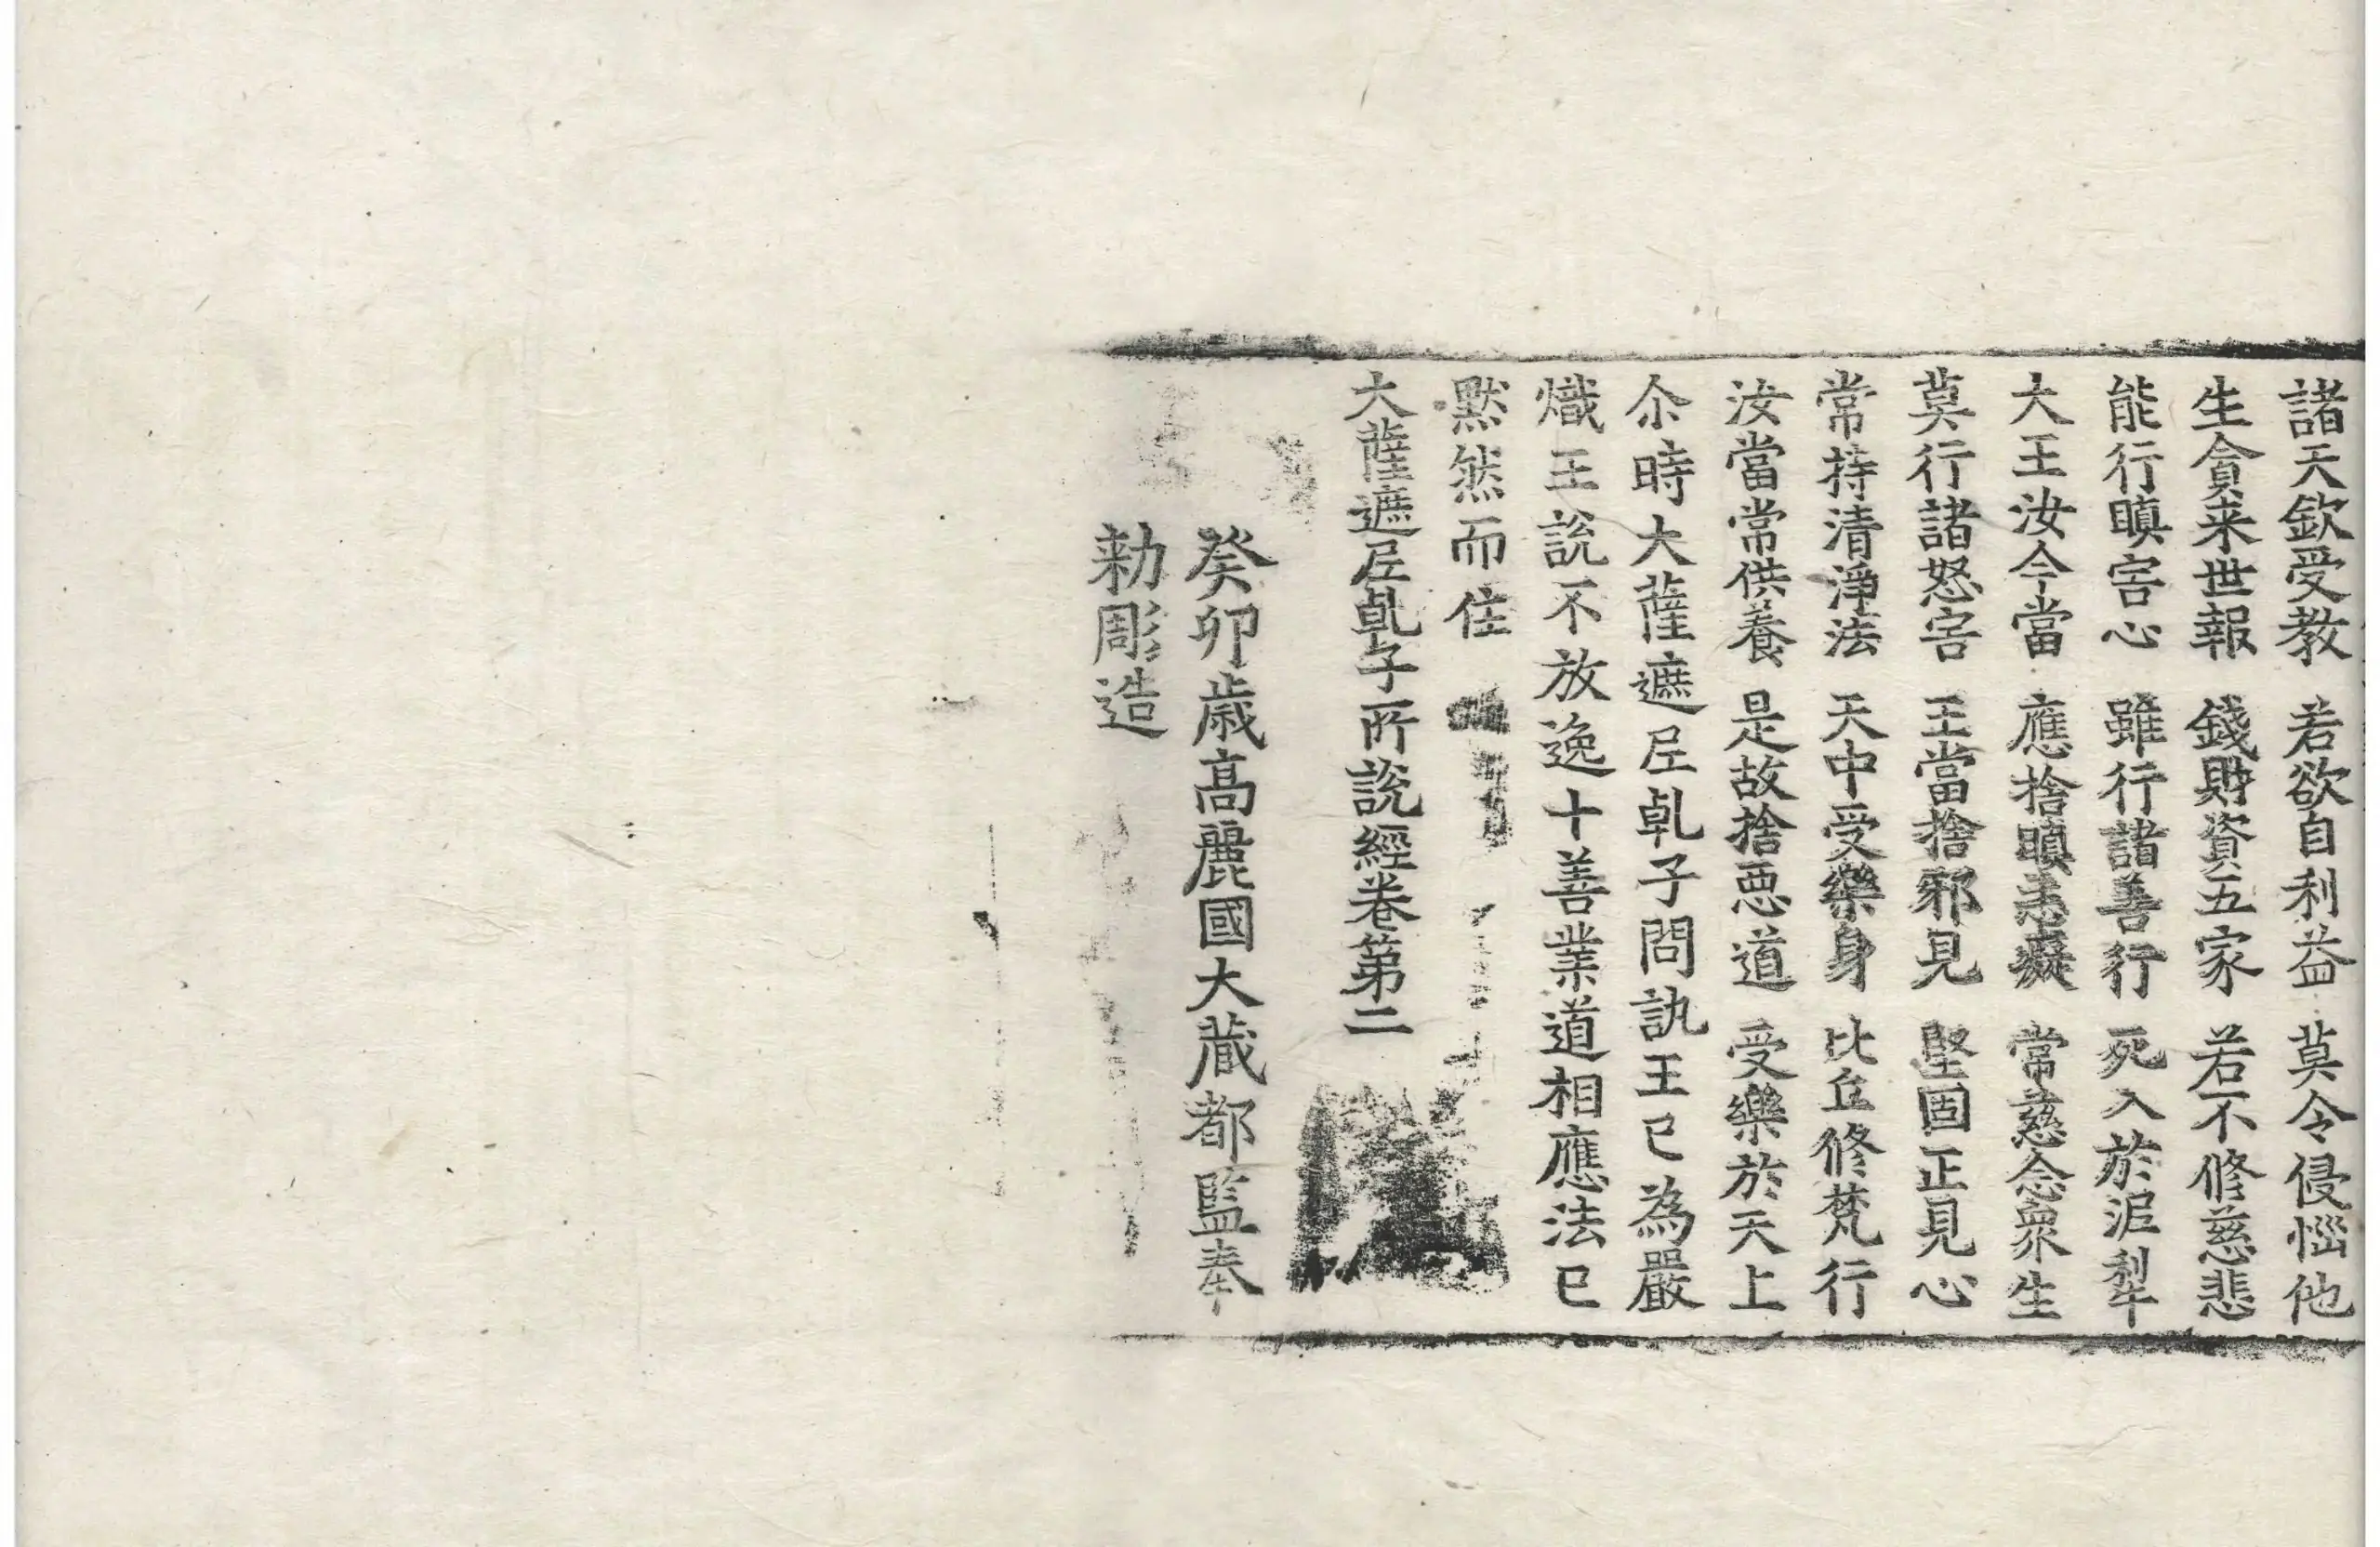 諸天欽受教　若欲自利益　莫令侵惱他
生貪来世報　錢財資五家　若不修慈悲
能行瞋害心　雖行諸善行　死入於泥犁
大王汝今當　應捨瞋恚癡　常慈念衆生
莫行諸怒害　王當捨邪見　堅固正見心
常持清淨法　天中受樂身　比丘修梵行
汝當常供養　是故捨惡道　受樂於天上
尒時大薩遮尼乹子問訊王已為嚴
熾王說不放逸十善業道相應法已
黙然而住
大薩遮尼乹子所說經卷第二
癸卯歲高麗國大藏都監奉
勅彫造